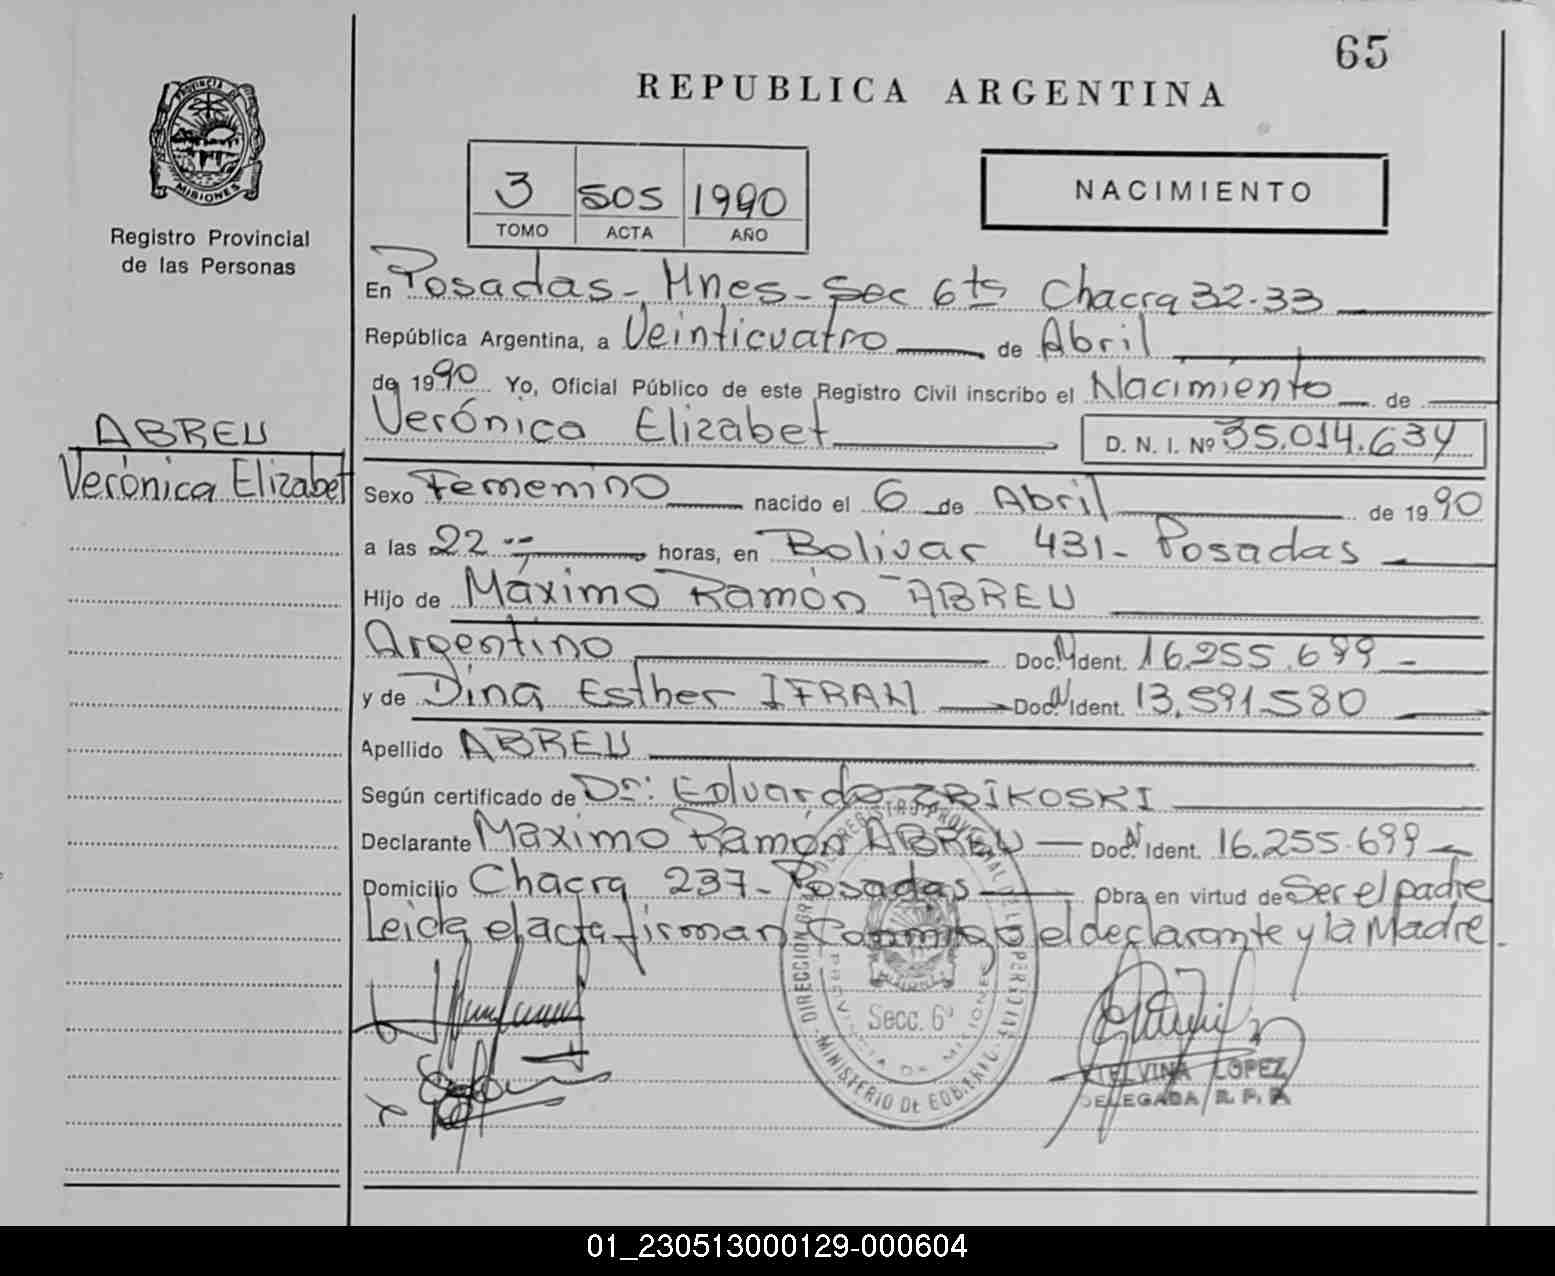 65
REPUBLICA ARGENTINA
PROVINCIA DE
MISIONES
Registro Provincial
de las Personas
3 505 1990
TOMO ACTA AÑO
NACIMIENTO
En Posadas - Mnes - Sec 6ta Chacra 32-33
República Argentina, a Veinticuatro de Abril
de 1990 Yo, Oficial Público de este Registro Civil inscribo el Nacimiento de
Verónica Elizabet D. N. I. Nº 35.014.634
ABREU
Verónica Elizabet
Sexo Femenino nacido el 6 de Abril de 1990
a las 22 horas, en Bolivar 431 - Posadas
Hijo de Máximo Ramón ABREU
Argentino Doc. N Ident. 16.255.699
y de Dina Esther IFRAN Doc. N Ident. 13.591.580
Apellido ABREU
Según certificado de Dr: Eduardo ZRIKOSKI
Declarante Máximo Ramón ABREU Doc. N Ident. 16.255.699
Domicilio Chacra 237 - Posadas Obra en virtud de Ser el padre
Leida el acta firman Conmigo el declarante y la Madre.
DIRECCION GRAL DEL REGISTRO PROVINCIAL DE LAS PERSONAS
PROVINCIA DE MISIONES
Secc. 6ª
MINISTERIO DE GOBIERNO
ETELVINA LOPEZ
DELEGADA R. P. P.
01_230513000129-000604